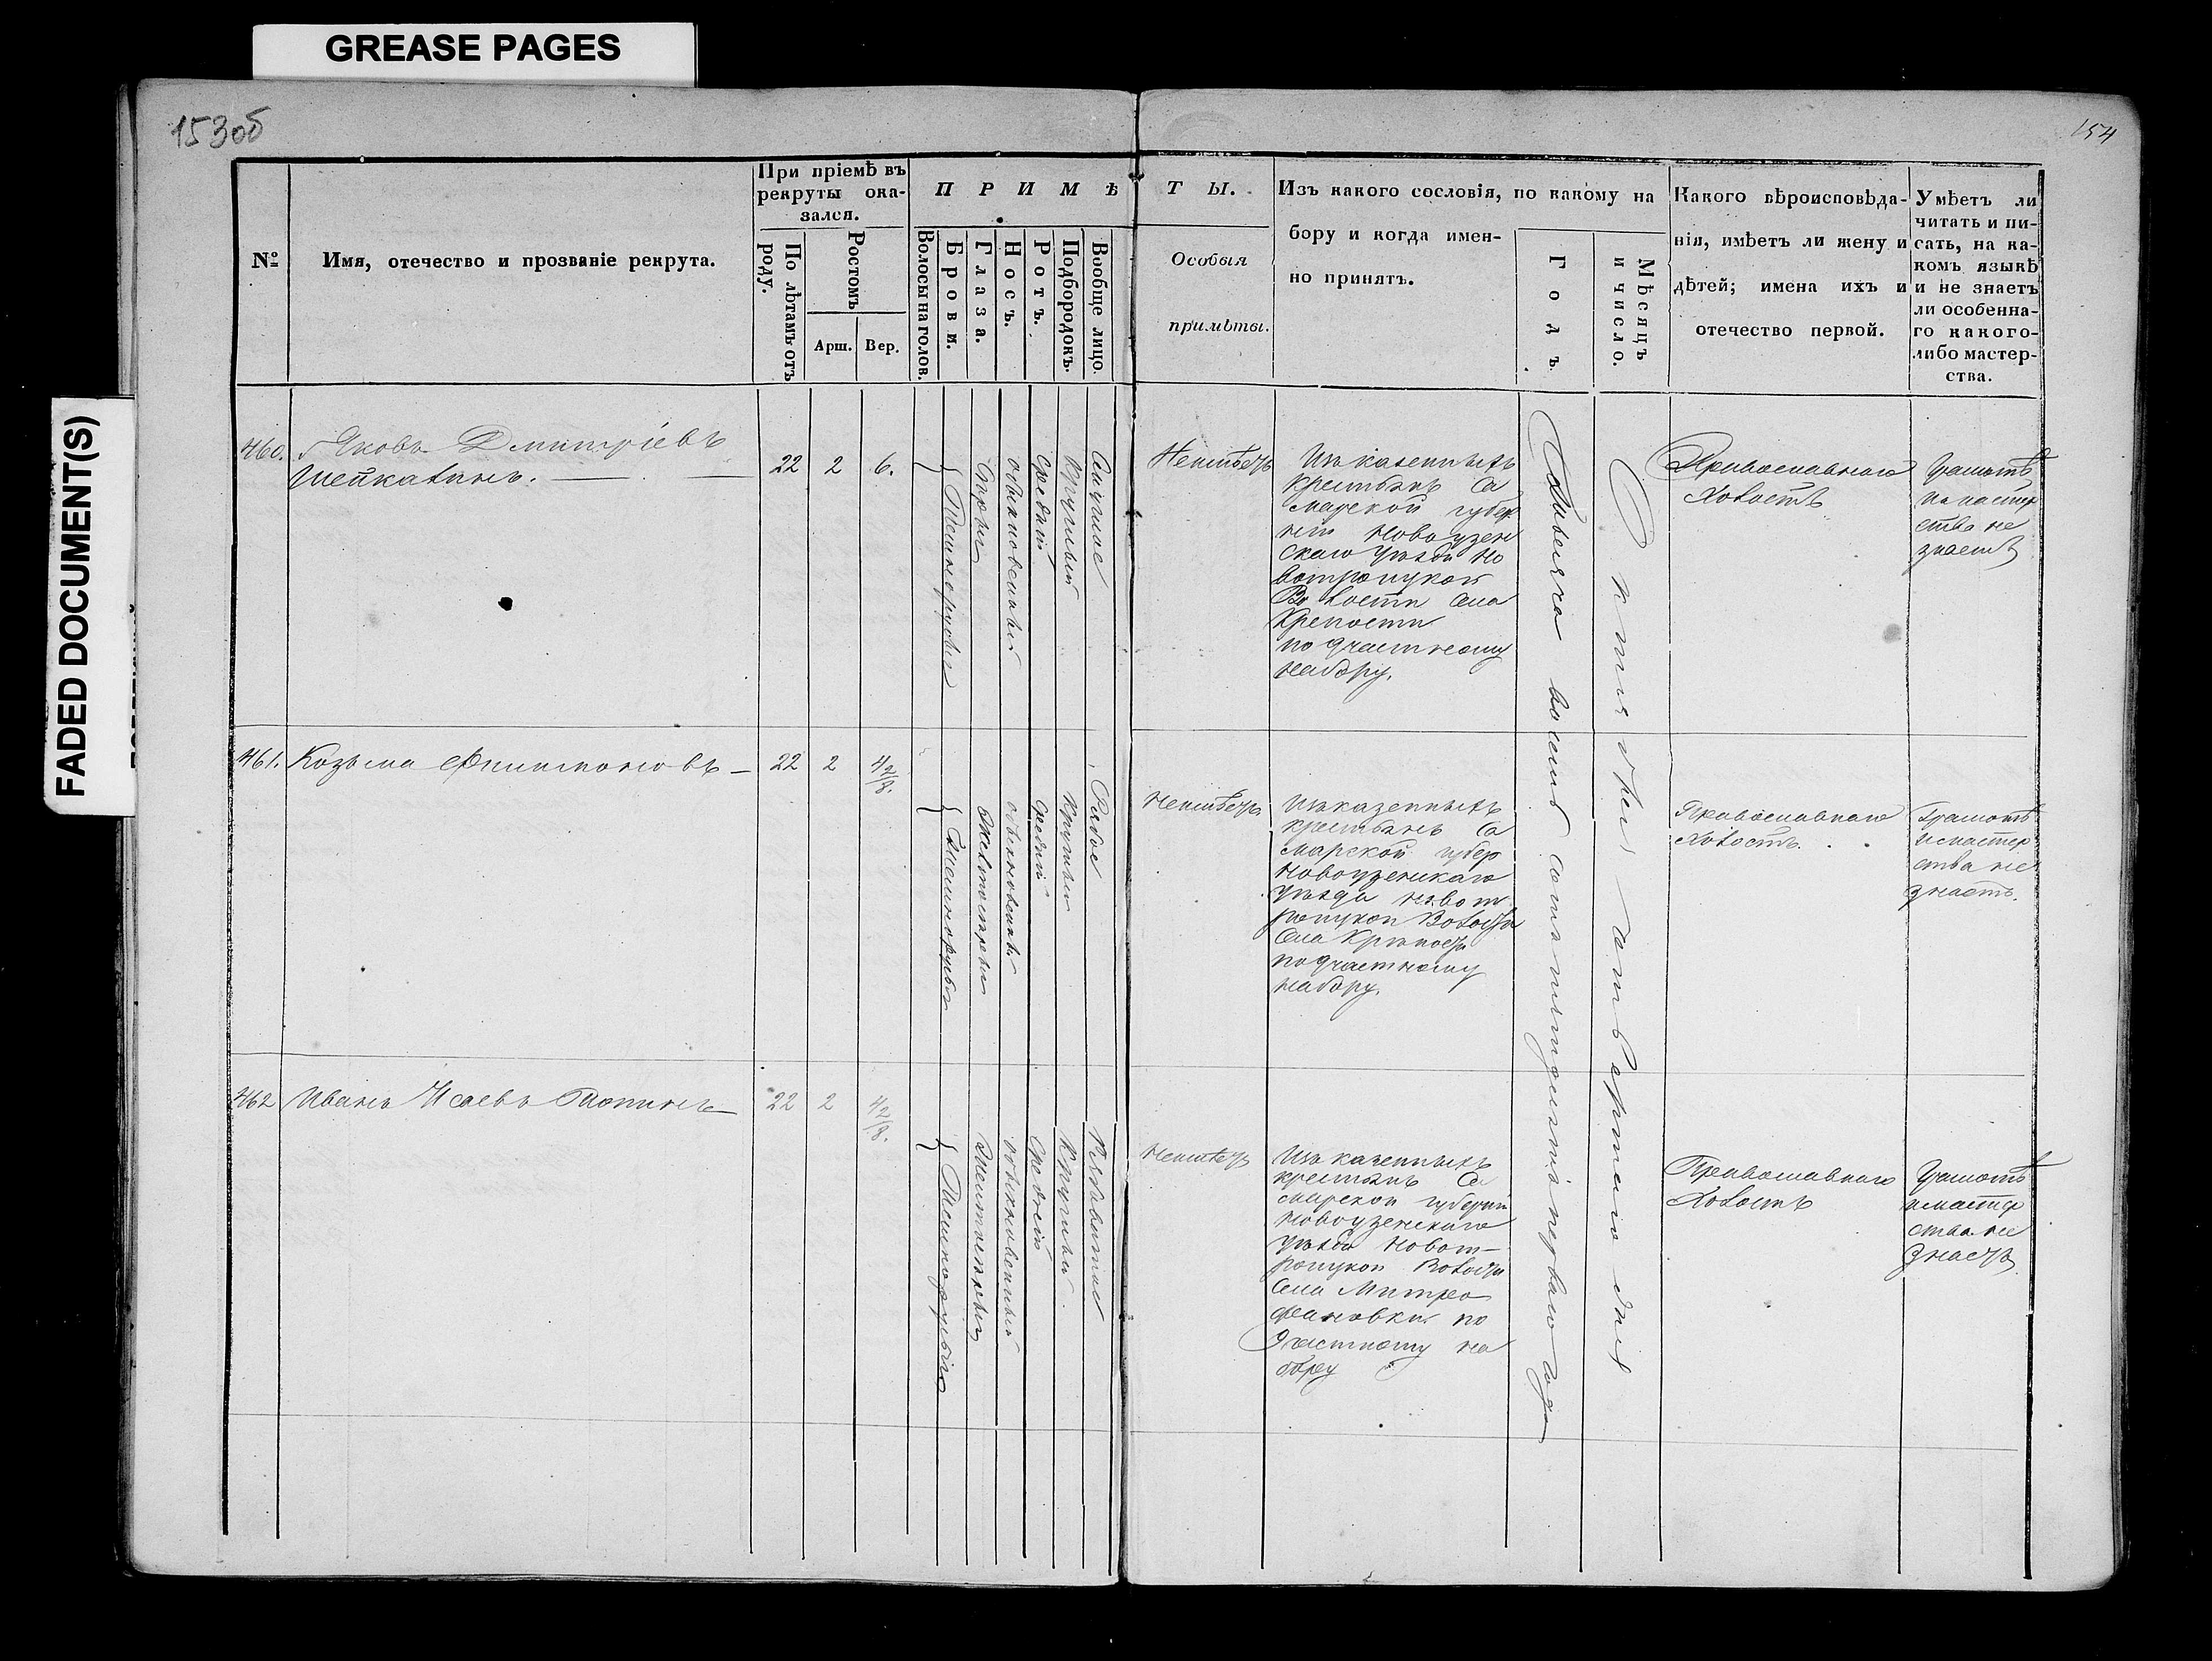 GREASE PAGES
FADED DOCUMENT(S)
153об
154
№
Имя, отечество и прозваніе рекрута.
При пріемѣ въ
рекруты ока-
зался.
По лѣтамъ отъ
роду.
Ростомъ
Арш.
Вер.
ПРИМѢ
Волосы на голов.
Брови.
Глаза.
Носъ.
Ротъ.
Подбородокъ.
Вообще лицо.
ТЫ.
Особыя
примѣты.
Изъ какого сословія, по какому на
бору и когда имен-
но принятъ.
Годъ.
Мѣсяцъ
и число.
Какого вѣроисповѣда-
нія, имѣетъ ли жену и
дѣтей; имена ихъ и
отечество первой.
Умѣетъ ли
читать и пи-
сать, на ка-
комъ языкѣ
и не знаетъ
ли особенна-
го какого-
либо мастер-
ства.
460.
Яковъ Дмитріевъ
22 2 6.
Темнорусые
обыкновенный
средній
круглый
Изъ казенныхъ
крестьянъ Са
марской губер
ніи Новоузен
скаго уѣзда Но
вотроицкой
Волости села
Крепости
по 9 частному
набору.
Православнаго
Холостъ
Грамотѣ
ства не
знаетъ
461. Козьма Филимоновъ
22 2 4 2/8.
Темнорусые
обыкновенный
средній
круглый
Рябое
Изъ казенныхъ
крестьянъ Са
марской губер
Новоузенскаго
уѣзда Новот
роицкой Волости
села Крѣпости
по 9 частному
набору.
Православнаго
Холостъ.
Грамотѣ
и мастер
ства не
знаетъ.
462 Иванъ Исаевъ
22 2 4 2/8.
Темнорусые
обыкновенный
средній
круглый
Изъ казенныхъ
крестьянъ Са
марской губерніи
Новоузенскаго
уѣзда Новот-
роицкой Волости
села Митро
фановки по
9 частному на
бору
Православнаго
Холостъ
Грамотѣ
и мастер
ства не
знаетъ
Тысяча восемь сотъ пятьдесятъ перваго года